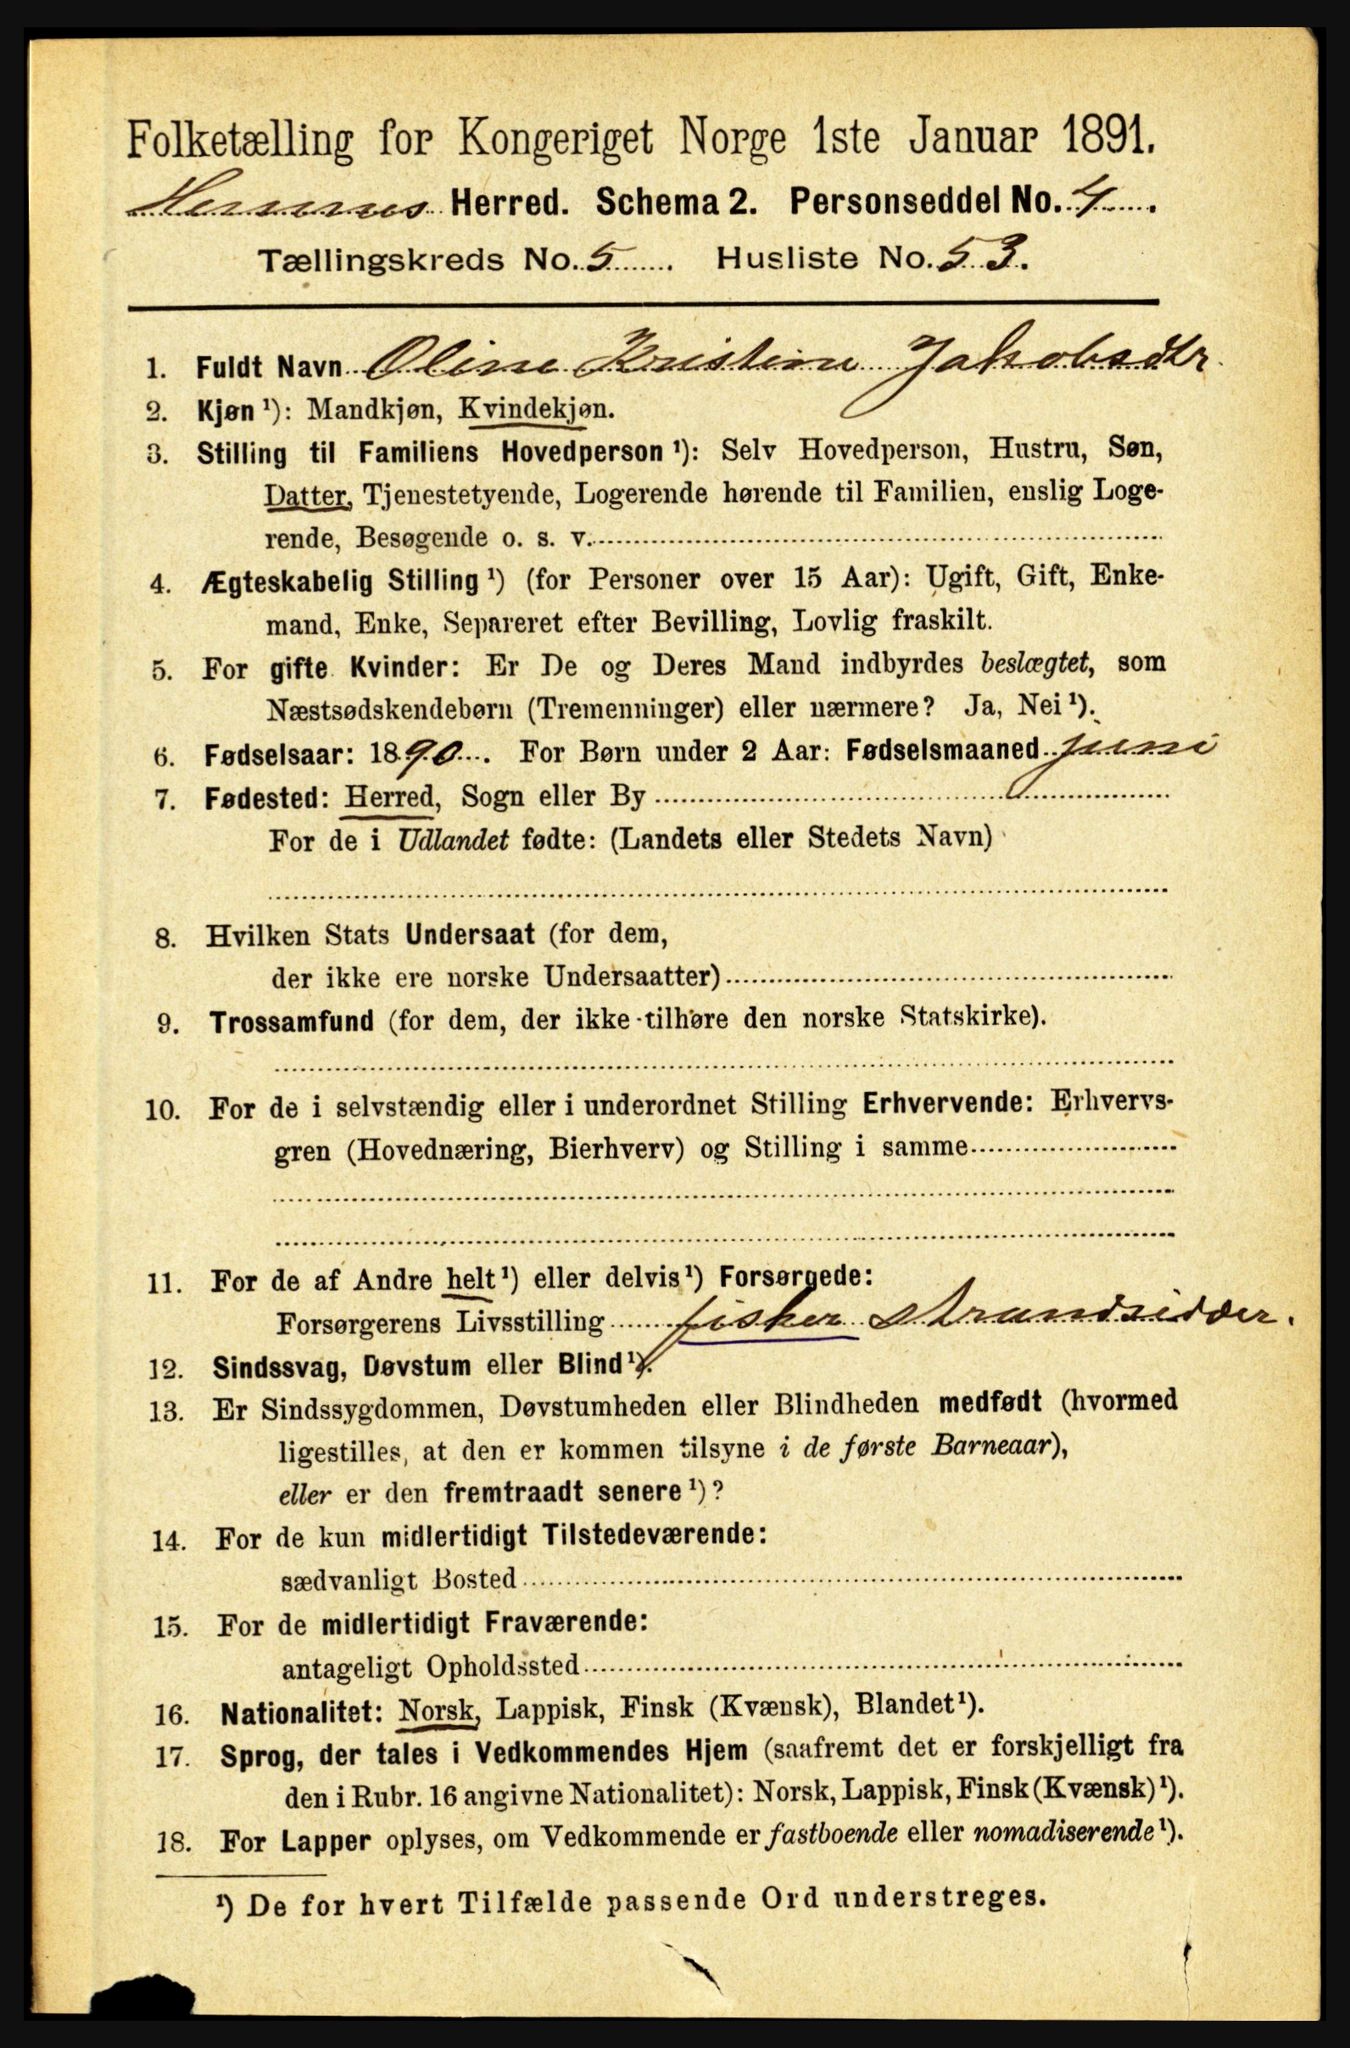 Folketælling for Kongeriget Norge 1ste Januar 1891.
Herred. Schema 2. Personseddel No. 4.
Tællingskreds No. 5. Husliste No. 53.
1. Fuldt Navn Oline Kristine Jakobsdtr.
2. Kjøn ¹): Mandkjøn, Kvindekjøn.
3. Stilling til Familiens Hovedperson ¹): Selv Hovedperson, Hustru, Søn,
Datter, Tjenestetyende, Logerende hørende til Familien, enslig Loge-
rende, Besøgende o. s. v.
4. Ægteskabelig Stilling ¹) (for Personer over 15 Aar): Ugift, Gift, Enke-
mand, Enke, Separeret efter Bevilling, Lovlig fraskilt.
5. For gifte Kvinder: Er De og Deres Mand indbyrdes beslægtet, som
Næstsødskendebørn (Tremenninger) eller nærmere? Ja, Nei ¹).
6. Fødselsaar: 1890. For Børn under 2 Aar: Fødselsmaaned juni
7. Fødested: Herred, Sogn eller By
For de i Udlandet fødte: (Landets eller Stedets Navn)
8. Hvilken Stats Undersaat (for dem,
der ikke ere norske Undersaatter)
9. Trossamfund (for dem, der ikke tilhøre den norske Statskirke).
10. For de i selvstændig eller i underordnet Stilling Erhvervende: Erhvervs-
gren (Hovednæring, Bierhverv) og Stilling i samme
11. For de af Andre helt ¹) eller delvis ¹) Forsørgede:
Forsørgerens Livsstilling fisker strandsidder.
12. Sindssvag, Døvstum eller Blind ¹).
13. Er Sindssygdommen, Døvstumheden eller Blindheden medfødt (hvormed
ligestilles, at den er kommen tilsyne i de første Barneaar),
eller er den fremtraadt senere ¹)?
14. For de kun midlertidigt Tilstedeværende:
sædvanligt Bosted
15. For de midlertidigt Fraværende:
antageligt Opholdssted
16. Nationalitet: Norsk, Lappisk, Finsk (Kvænsk), Blandet ¹).
17. Sprog, der tales i Vedkommendes Hjem (saafremt det er forskjelligt fra
den i Rubr. 16 angivne Nationalitet): Norsk, Lappisk, Finsk (Kvænsk) ¹).
18. For Lapper oplyses, om Vedkommende er fastboende eller nomadiserende ¹).
¹) De for hvert Tilfælde passende Ord understreges.